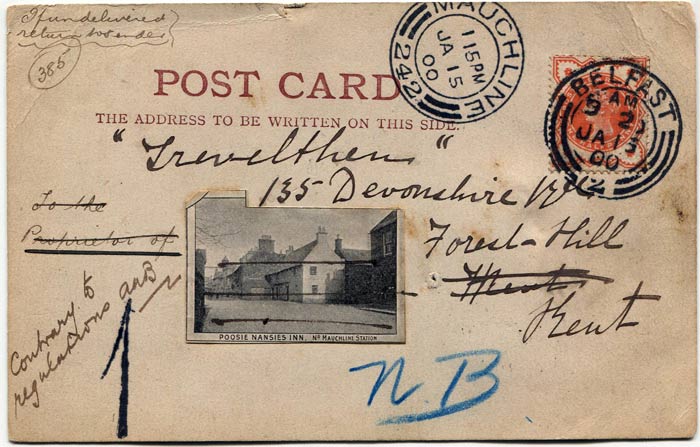 If undelivered
return to sender
385
MAUCHLINE
1 15 PM
JA 15
00
242
POST CARD
THE ADDRESS TO BE WRITTEN ON THIS SIDE.
BELFAST
AM
JA 13
00
"Trevelthen"
135 Devonshire
Forest-Hill
Kent
To the
Proprietor of
POOSIE NANSIES INN, NR MAUCHLINE STATION
Contrary to
regulations
1
N.B